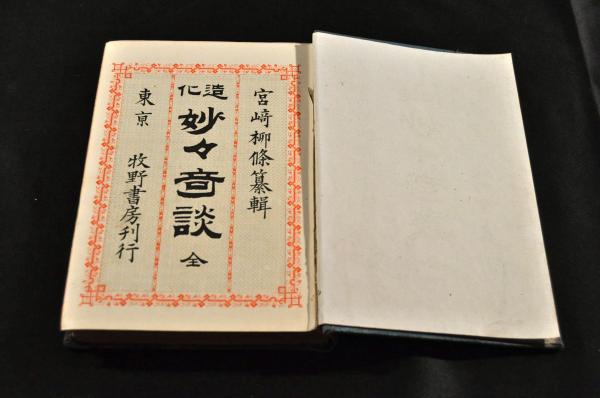 宮﨑柳條纂輯
造化
妙々奇談
全
東京
牧野書房刊行